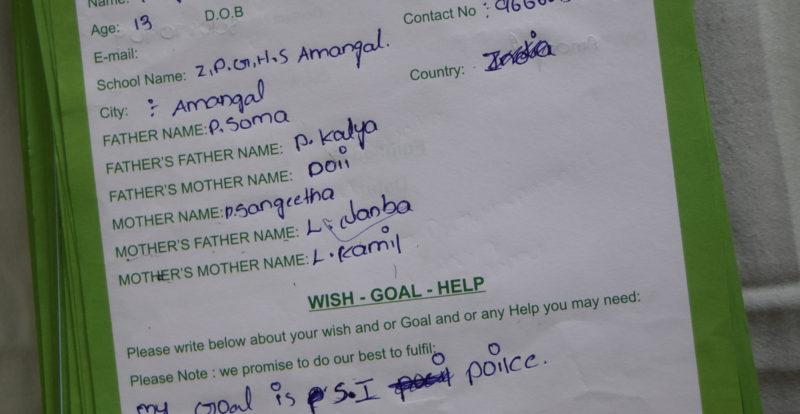 Name:
Age: 13
D.O.B
Contact No :
E-mail:
School Name: Z.P.G.H.S Amangal.
Country: India
City: : Amangal
FATHER NAME: P. Soma
FATHER'S FATHER NAME: P. Kalya
FATHER'S MOTHER NAME: Doii
MOTHER NAME: P. Sangeetha
MOTHER'S FATHER NAME: L. Janba
MOTHER'S MOTHER NAME: L. Kamil
WISH - GOAL - HELP
Please write below about your wish and or Goal and or any Help you may need:
Please Note : we promise to do our best to fulfil:
my Goal is S.I poilce.